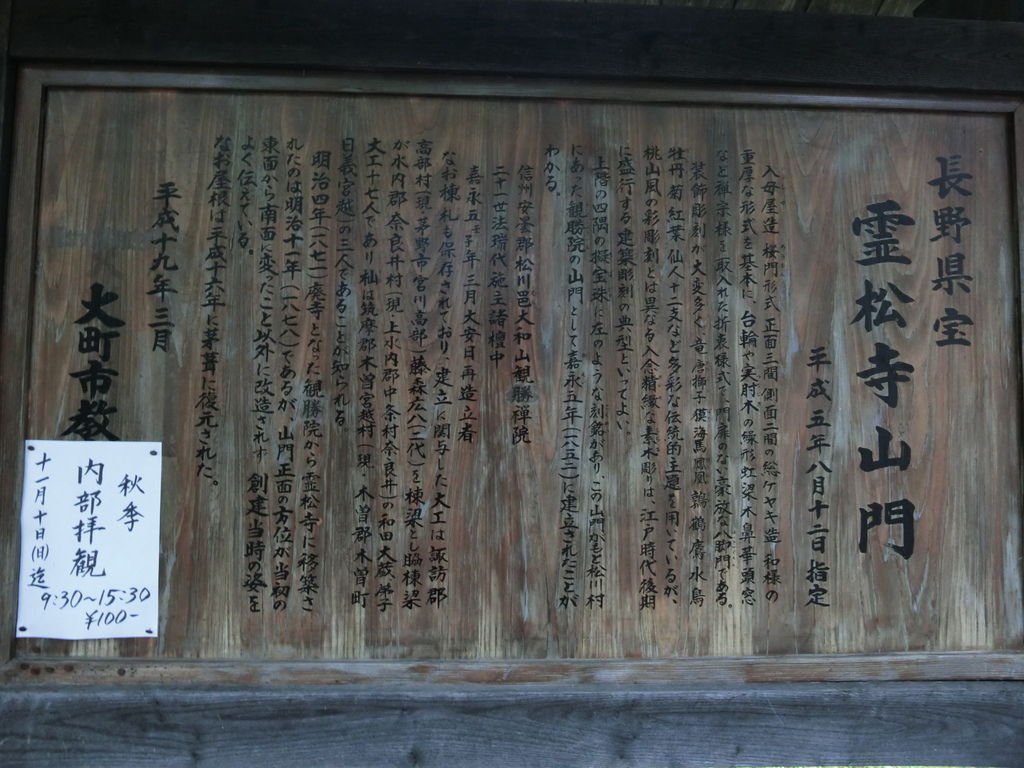 長野県宝
霊松寺山門
平成五年八月十二日指定
入母屋造 桜門形式 正面三間 側面二間の総ケヤキ造 和様の
重厚な形式を基本に、台輪や実肘木の繰形 虹梁木鼻 華頭窓
など禅宗様を取入れた折衷様式で、門扉のない豪放な八脚門である。
装飾彫刻が大変多く、竜 唐獅子 獏 海馬 鳳凰 鶴 鷹 水鳥
牡丹 菊 紅葉 仙人 十二支など多彩な伝統的主題を用いているが、
桃山風の彩彫刻とは異なる入念精緻な素木彫りは、江戸時代後期
に盛行する建築彫刻の典型といってよい。
上階の四隅の擬宝珠に左のような刻銘があり、この山門がもと松川村
にあった観勝院の山門として嘉永五年(一八五二)に建立されたことが
わかる。
信州安曇郡松川邑大和山観勝禅院
二十一世法瑞代施主諸檀中
嘉永五壬子年三月大安日再造立者
なお棟札も保存されており、建立に関与した大工は諏訪郡
高部村(現・茅野市宮川高部)藤森広八(二代)を棟梁とし脇棟梁
が水内郡奈良井村(現・上水内郡中条村奈良井)の和田大 弟子
大工十七人であり 杣は筑摩郡木曽宮越村(現・木曽郡木曽町
日義宮越)の三人であることが知られる。
明治四年(一八七一)廃寺となった観勝院から霊松寺に移築さ
れたのは明治十一年(一八七八)であるが、山門正面の方位が当初の
東面から南面に変ったこと以外に改造されず 創建当時の姿を
よく伝えている。
なお屋根は平成十六年に茅葺に復元された。
平成十九年三月
大町市教
秋季
内部拝観
十一月十日(日)迄
9:30〜15:30
¥100-